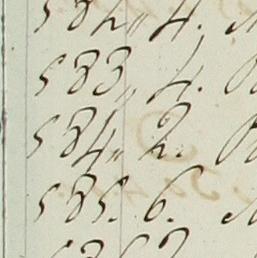 582,, 4.
583,, 4.
584,, 2.
585. 6.